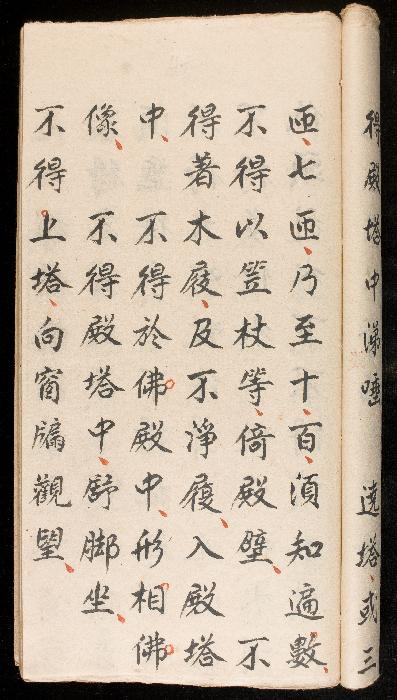 得殿塔中涕唾 遶塔或三
匝、七匝、乃至十、百、須知遍數、
不得以笠杖等、倚殿壁、 不
得著木屐、及不淨履、入殿塔
中、 不得於佛殿中、形相佛
像、 不得殿塔中、舒脚坐、
不得上塔、向窗牖觀望、